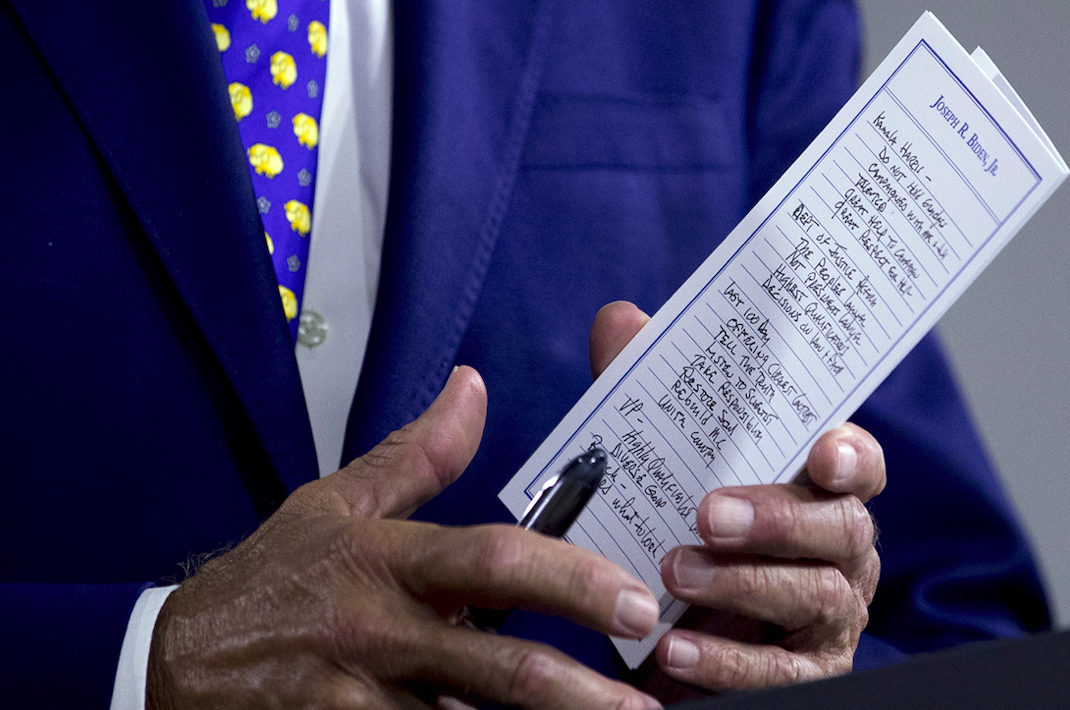 JOSEPH R. BIDEN, JR.
KAMALA HARRIS –
DO NOT HOLD GRUDGES
CAMPAIGNED WITH ME & JILL
TALENTED.
GREAT HELP TO CAMPAIGN
GREAT RESPECT FOR HER
DEPT OF JUSTICE
THE PEOPLES LAWYER
NOT PRESIDENTS LAWYER
HIGHEST QUALIFICATIONS
DECISIONS ON LAW &
LAST 100 DAY
TELL THE TRUTH
LISTEN TO SCIENTIST
TAKE RESPONSIBILITY
RESTORE SOUL
REBUILD M.C
UNITE COUNTRY
VP –
HIGHLY QUALIFIED
DIVERSE GROUP
what to look